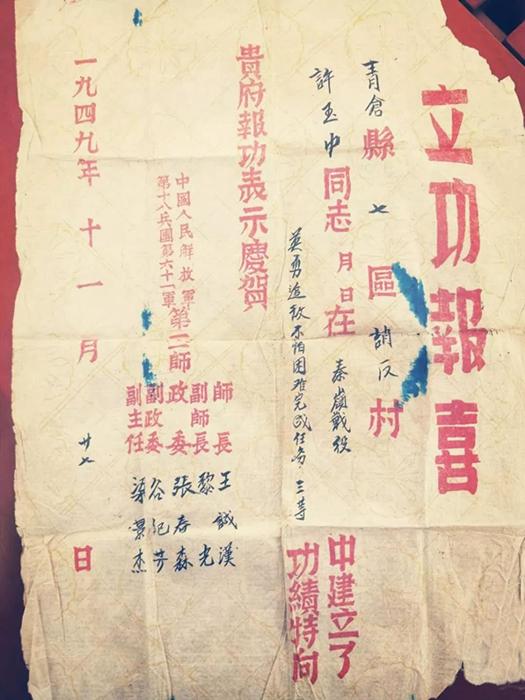 立功報喜
青倉縣七區趙仄村
許玉申同志 月 日在秦嶺戰役
中建立了
英勇追敌不怕困难完成任务三等
功績特向
貴府報功表示慶賀
中國人民解放軍
第十八兵團第六十一軍
第二師
師長 王誠漢
副師長 黎光
政委 張春森
副政委 谷記芳
副主任 梁景杰
一九四九年十一月廿七日